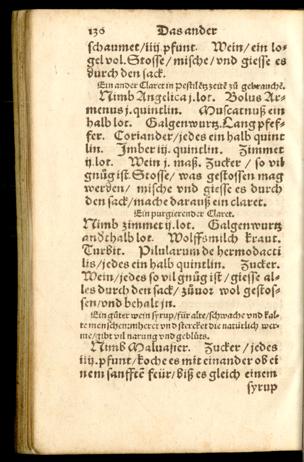 136 Das ander
schaumet/iiij.pfunt. Wein/ein lo-
gel vol. Stosse/mische/vnd giesse es
durch den sack.
Ein ander Claret in Pestilentz zeitē zů gebrauchē.
Nimb Angelica j.lot. Bolus Ar-
menus j.quintlin. Muscatnuß ein
halb lot. Galgenwurtz. Lang pfef-
fer. Coriander/jedes ein halb quint
lin. Imber iij.quintlin. Zimmet
ij.lot. Wein j.maß. Zucker / so vil
gnůg ist. Stosse/ was gestossen mag
werden/ mische vnd giesse es durch
den sack/mache darauß ein claret.
Ein purgierender Claret.
Nimb zimmet ij.lot. Galgenwurtz
andthalb lot. Wolffsmilch kraut.
Turbit. Pilularum de hermodacti
lis/jedes ein halb quintlin. Zucker.
Wein/jedes so vil gnůg ist/giesse al-
les durch den sack/ zůuor wol gestos-
sen/vnd behalt jn.
Ein gůter wein syrup/für alte/schwache vnd kal-
te menschen:mheret vnd stercket die natürlich wer-
me/gibt vil narung vnd geblůts.
Nimb Maluasier. Zucker / jedes
iiij.pfunt/koche es mit einander ob ei
nem sanfftē feür/biß es gleich einem
syrup